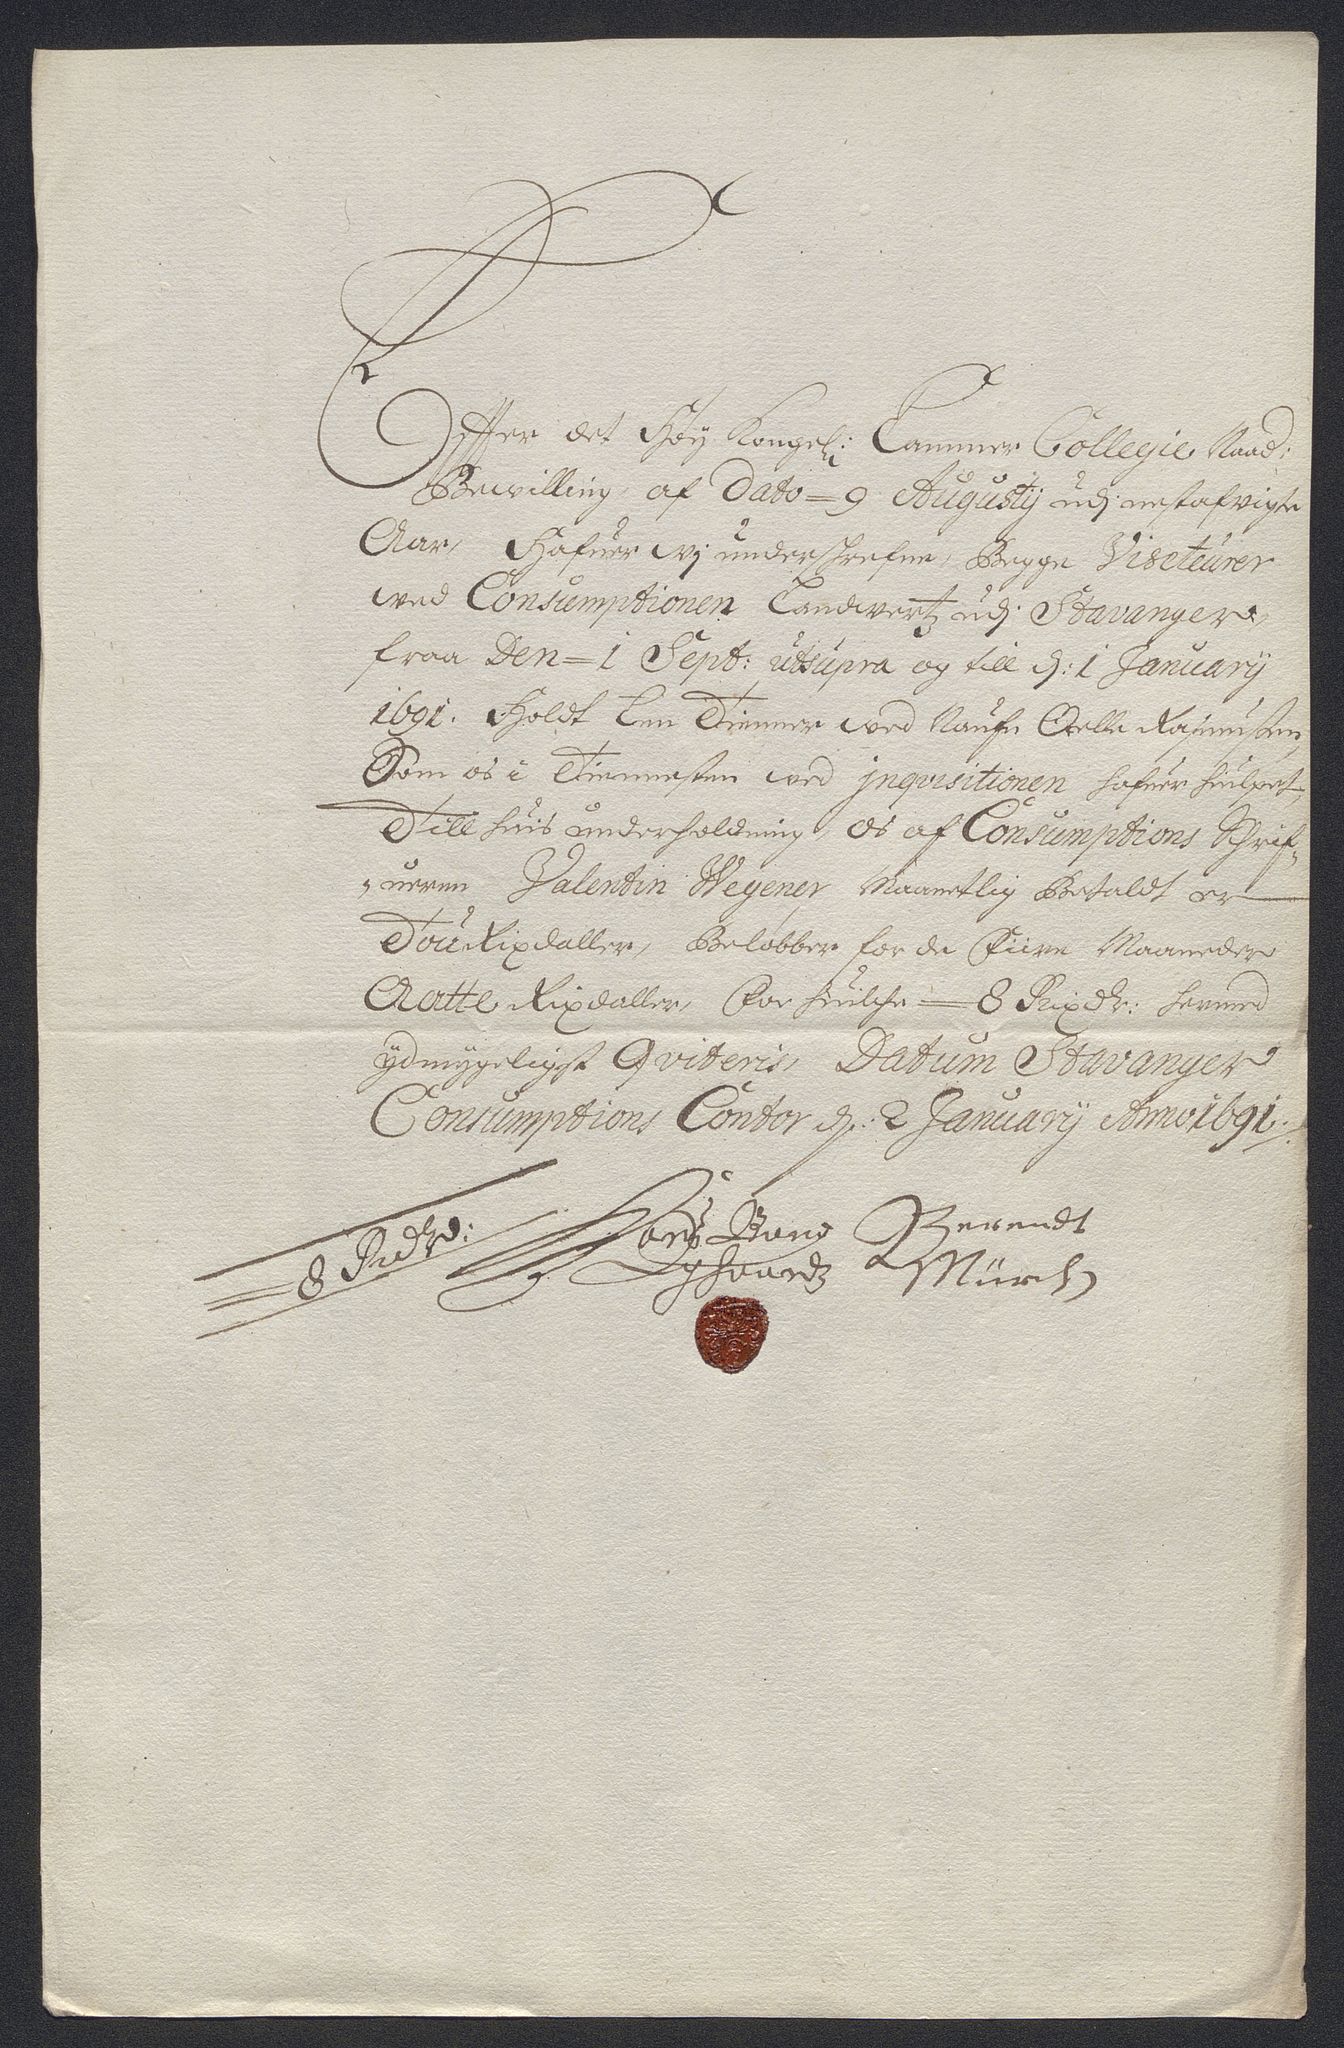 Effter det Høy Kongel: Cammer Collegie Naad:
Bewilling, af Dato = 9 Augustij udj nestafvigte
Aar, Hafuer wj underschrefne, Begge Viseteurer
wed Consumptionen Landwertz udj Stavanger,
fraa Den = 1 Sept: utsupra og till d: 1 January
1691. Holdt Een Tienner wed Naufn Oelle Rasmussen,
Som os i Tiennesten wed jnqvisitionen hafuer hiulpet,
Till huis underholdning, os af Consumptions Schrif-
-ueren Valentin Wegener Maanetlig Betaldt er
Tou Rixdaller, Beløbber for de Fiire Maaneder
Aatte Rixdaller, For huilche = 8 Rixdr: hermed
ydmygeligst Qviteris, Datum Stavanger
Consumptions Contor d: 2 January Anno 1691.
= 8 Rdr: Bang Berendt
Mürch